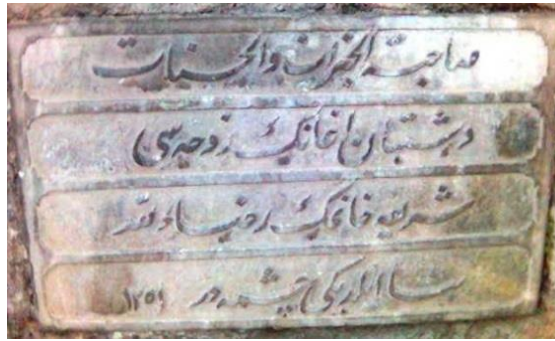 صاحبة الخيرات والحسنات
دشتبان اغانك زوجه سي
شريفه خانمك
بنا ايلديكي چشمه در ١٢٥٩